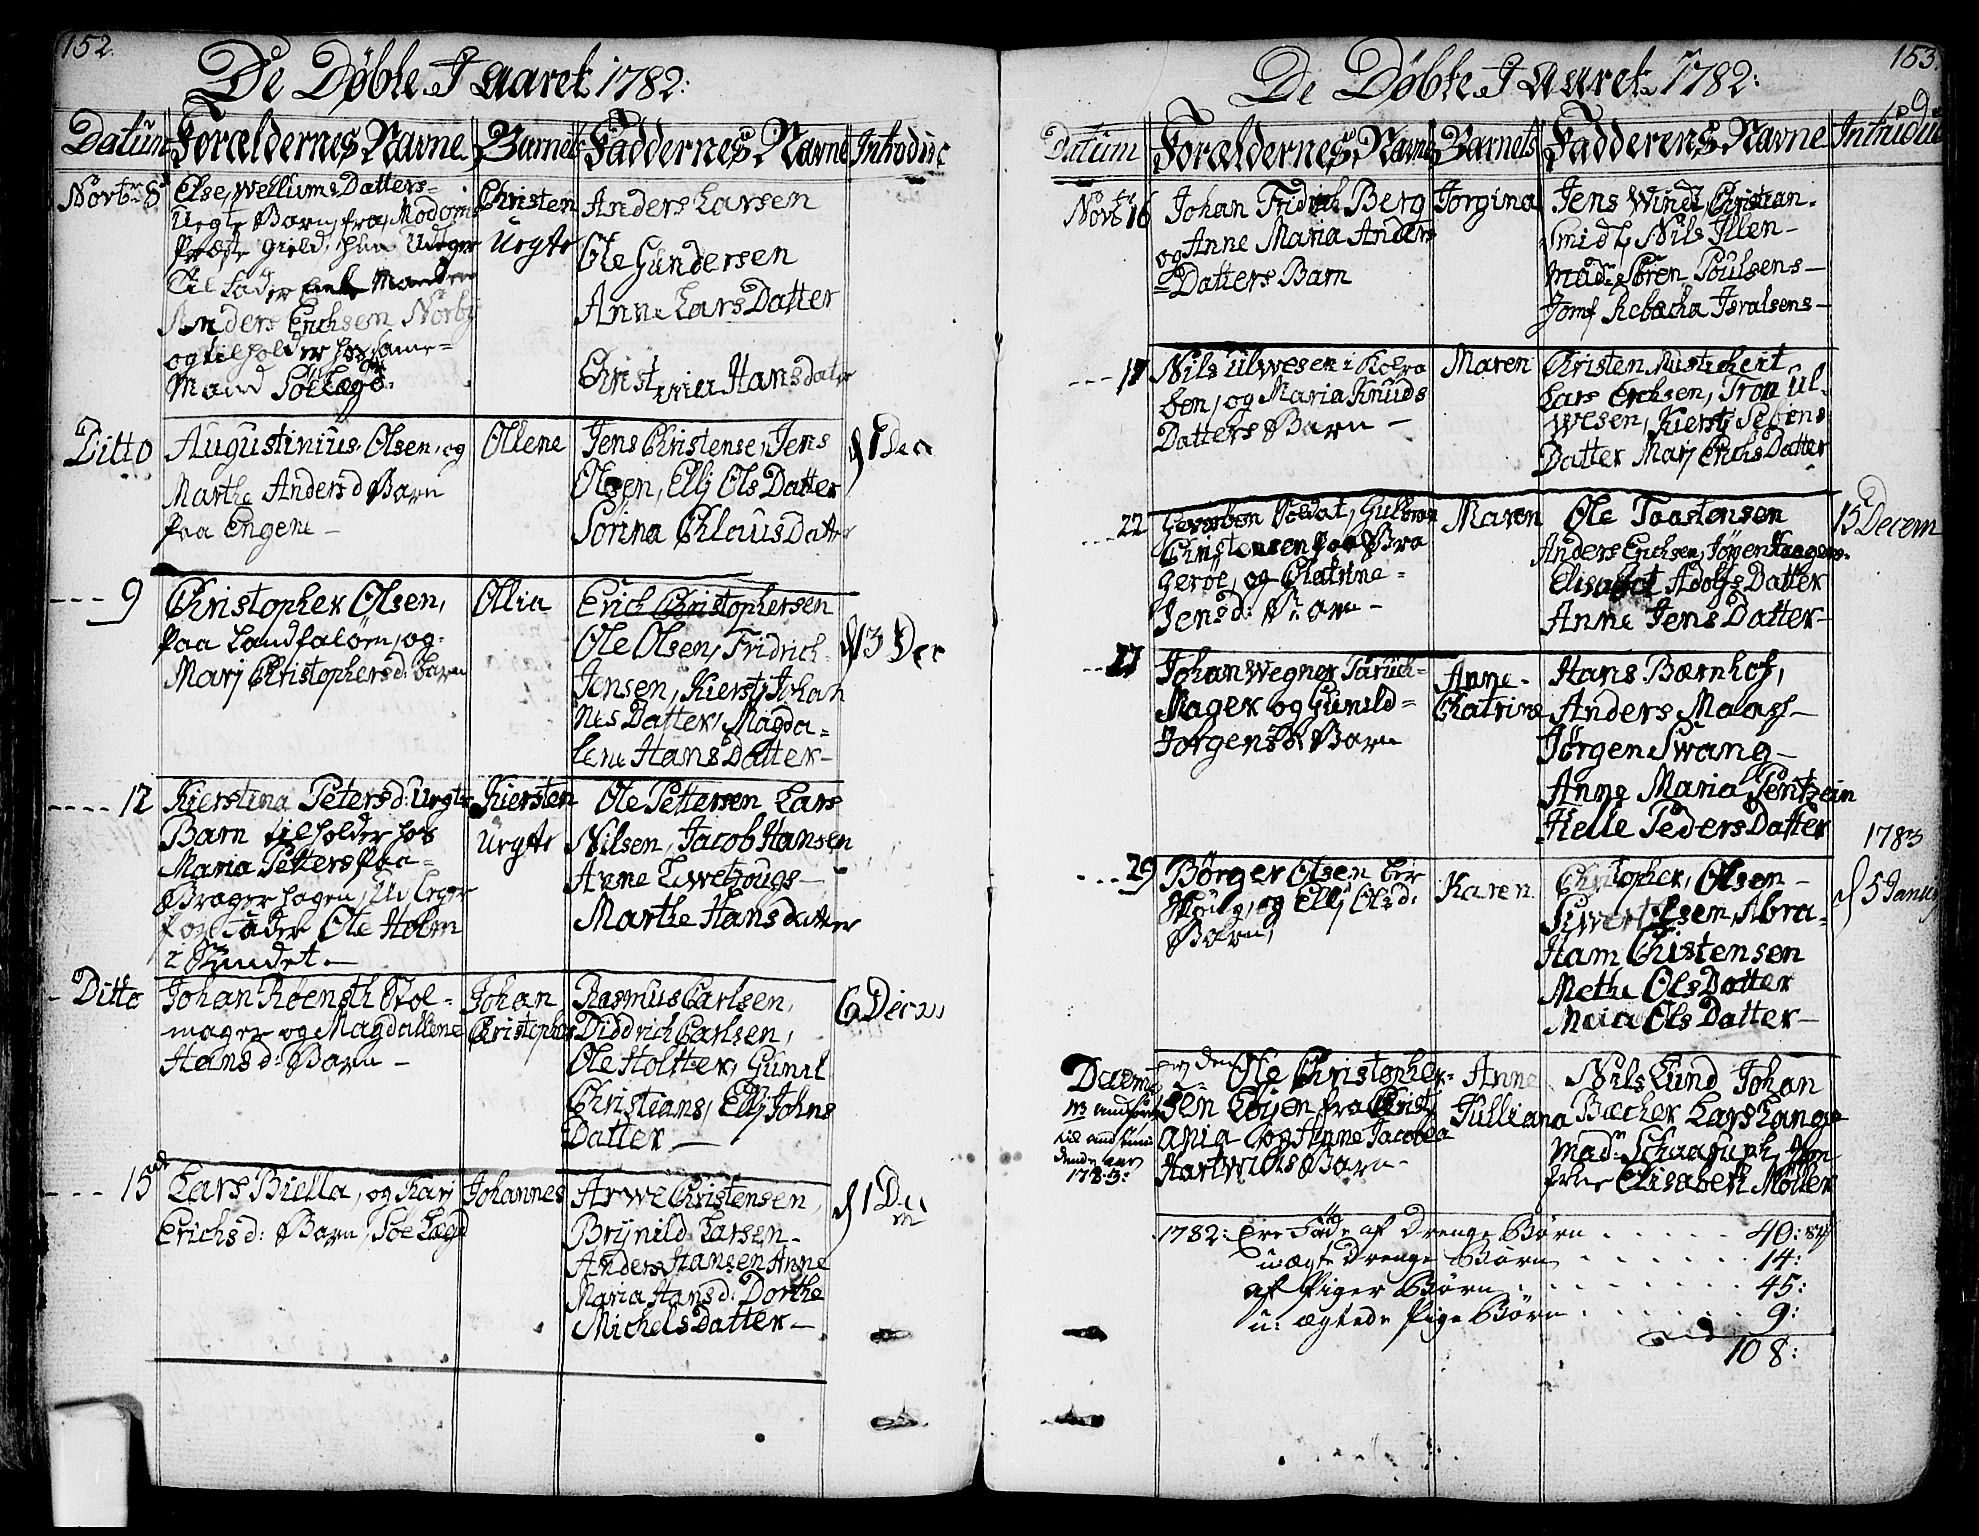 152.
De Døbte I aaret 1782:
Datum Forældernes Navne Barnets Faddernes Navne Introduc
Novbr 8 Else Wellums Datters
Uegte Barn, fra Modoms
Præste Gield, hun Udeger
Til Fader Enke Manden
Anders Erichsen Nørby
og tilholder hos same
Mand Søe Lægd.
Christen
Uegte
Anders Larsen
Ole Gundersen
Anne Lars Datter
Hans dater
Ditto Augustinius Olsen, og
Marthe Andersd Barn
Paa Engene
Ollene
Jens Christense, Jens
Olsen, Ellj Ols Datter
Sorina Chlaus Datter
d 1 Dec
9 Christopher Olsen,
Paa Landfaløen, og
Marj Christophersd: barn
Ollia
Erich Christophersen
Ole Olsen, Fridrich
Jensen, Kiersti Johan
nes Datter, Magda=
lene Hans Datter
d 13 Dec
12 Kierstina Petersd: Uegte
Barn tilholder hos
Maria Petters Paa
Bragerhagen, Ud leger
for Fader Ole Holm
i Sundet.
Kiersten
Uegte
Ole Pettersen Lars
Nilsen, Jacob Hansen
Anne
Marthe Hans datter
Ditto Johan Røensth Stol=
mager og Magdallene
Hans d: Barn
Johan
Christopher
Rasmus Carlsen,
Diddrich Carlsen,
Ole Holtter, Gunil
Christians, Ellj Johns
Datter
6 Decm
15 Lars Biella, og Karj
Erichs d: Barn, Søe Lægd
Johannes
Arwe Christensen,
Brynild Larsen
Anders Hansen Anne
Maria Hans d: Dorthe
Michels Datter
d 1 Dec
153.
De Døbte I Aaret 1782:
Datum Forældernes Navne Barnets Fadderens Navne Introduc
Novbr 16 Johan Fridrich Berg
og Anne Maria Anders
Datters Barn
Jorgina
Jens Windt, Christian
Smidt, Nils Illen
Mad: Søren Poulsens
Jomf Rebecha Isralsens
17 Nils Ulwesen i Kolra
ben, og Maria Knuds
Datters Barn
Maren
Christen
Lars Erchsen, Tron Ul
wesen, Kiersti Sebiens
Datter Marj Erichs Datter
22 Soldat, Gulbran
Christensen paa Bra
gerøe, og Chatrine
Jensd: Barn
Maren
Ole Taastensen
Anders Erichsen, Jørgen
Elisabet Adolfs Datter
Anne Jens Datter
15 Decem
27 Johan Wegner Paruch=
Mager og Gunild
Jorgensd Barn
Anne
Chatrine
Hans Bærnhof,
Anders Maas
Jørgen Swang
Anne Maria Pentzein
Helle Peders Datter
29 Børger Olsen
og Ellj Olsd:
Barn,
Karen
Christopher, Olsen
Siwert Olsen, Abra=
Ham Christensen
Methe Ols Datter
Maia Ols Datter
1783
d 5 Janu
Decemb
1783:
Ole Christopher=
sen Løjen fra Christ
ania og Anne Jacobea
Hartwichs Barn
Anne
Julliana
Nils Lund Johan
Bæcher Lars Lange
Mad: Schaarup, Jom
frue Elisabeth Møller
1782: Ere Føde af Drenge Børn 40:
uægte Drenge Børn 14:
af Piger Børn 45:
u: ægtede Pige Børn 9:
108: